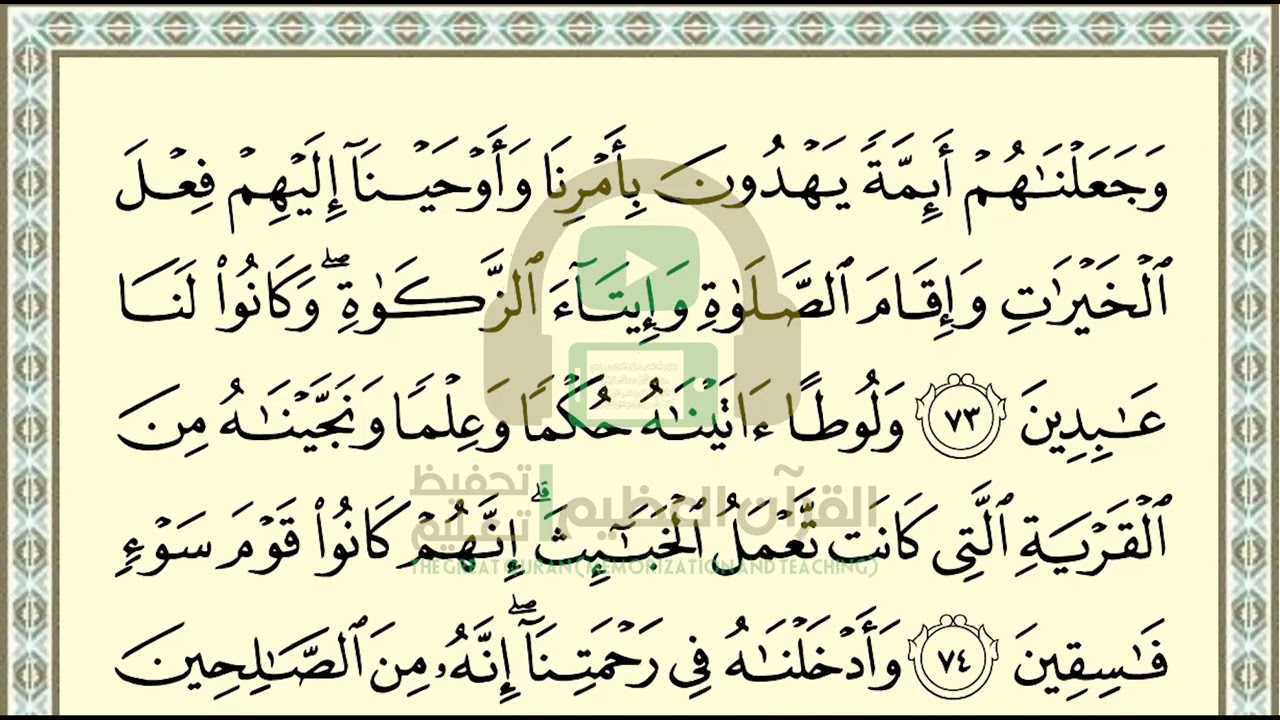 وَجَعَلۡنَٰهُمۡ أَئِمَّةٗ يَهۡدُونَ بِأَمۡرِنَا وَأَوۡحَيۡنَآ إِلَيۡهِمۡ فِعۡلَ
ٱلۡخَيۡرَٰتِ وَإِقَامَ ٱلصَّلَوٰةِ وَإِيتَآءَ ٱلزَّكَوٰةِۖ وَكَانُواْ لَنَا
عَٰبِدِينَ ٧٣ وَلُوطًا ءَاتَيۡنَٰهُ حُكۡمٗا وَعِلۡمٗا وَنَجَّيۡنَٰهُ مِنَ
تحفيظ
القرآن العظيم تعليم
ٱلۡقَرۡيَةِ ٱلَّتِي كَانَت تَّعۡمَلُ ٱلۡخَبَٰٓئِثَۚ إِنَّهُمۡ كَانُواْ قَوۡمَ سَوۡءٖ
THE GREAT QURAN (MEMORIZATION AND TEACHING)
فَٰسِقِينَ ٧٤ وَأَدۡخَلۡنَٰهُ فِي رَحۡمَتِنَآۖ إِنَّهُۥ مِنَ ٱلصَّٰلِحِينَ